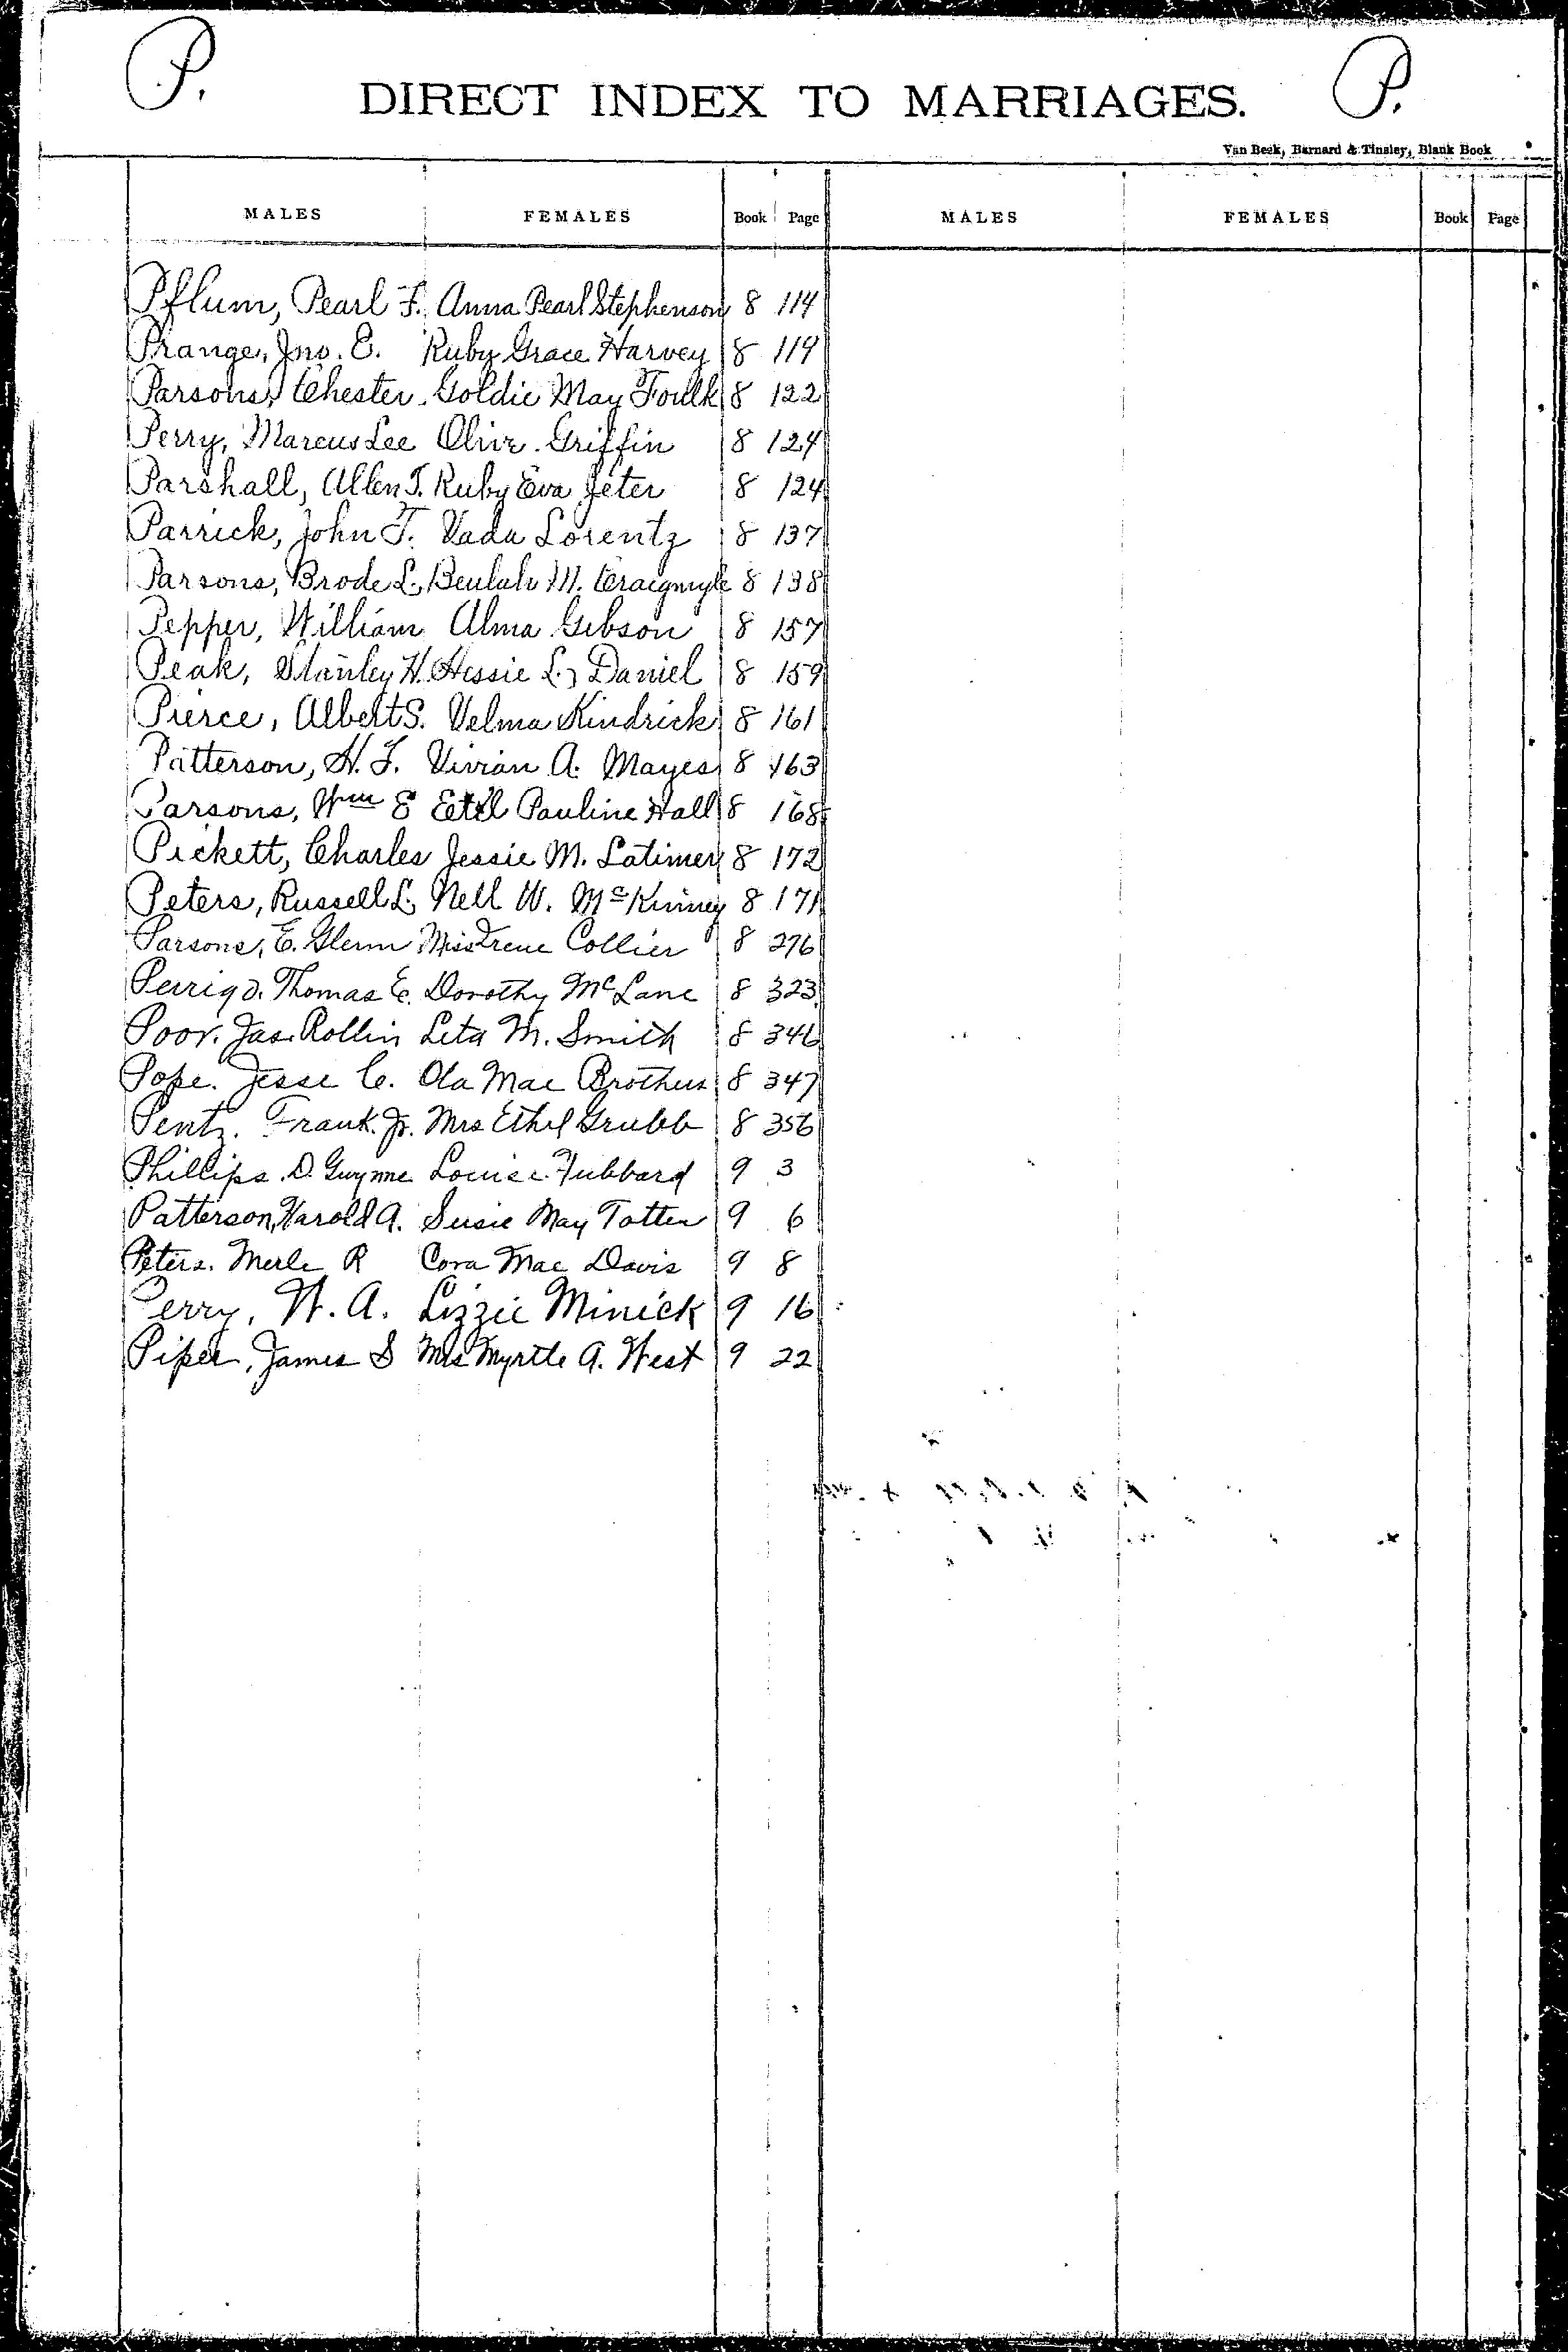 P. DIRECT INDEX TO MARRIAGES. P.
Van Beek, Barnard & Tinsley, Blank Book
MALES FEMALES Book Page MALES FEMALES Book Page
Pflum, Pearl F. Anna Pearl Stephenson 8 114
Prange, Jno. E. Ruby Grace Harvey 8 119
Parsons, Chester. Goldie May Foulk 8 122
Perry, Marcus Lee Olive Griffin 8 124
Parshall, Allen T. Ruby Eva Jeter 8 124
Parrick, John T. Vada Lorentz 8 137
Parsons, Brode L. Beulah M. Craigmyle 8 138
Pepper, William Alma Gibson 8 157
Peak, Stanley H. Hessie L. Daniel 8 159
Pierce, Albert S. Velma Kindrick 8 161
Patterson, H. F. Vivian A. Mayes 8 163
Parsons, Wm E Pauline Hall 8 168
Pickett, Charles Jessie M. Latimer 8 172
Peters, Russell L. Nell W. McKinney 8 171
Parsons, E. Glenn Miss Irene Collier 8 276
Perrigo. Thomas E. Dorothy McLane 8 323
Poor. Jas. Rollin Leta M. Smith 8 346
Pope. Jesse C. Ola Mae Brothers 8 347
Pentz. Frank. Jr. Mrs Ethel Grubb 8 356
Phillips. D. Gwynne Louise Hubbard 9 3
Patterson, Harold A. Susie May Totten 9 6
Peters. Merle R Cora Mae Davis 9 8
Perry, W. A. Lizzie Minick 9 16
Piper, James S Mrs Myrtle A. West 9 22